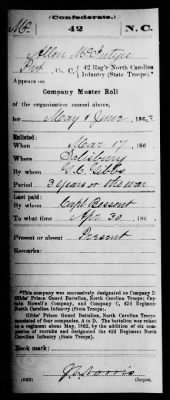 (Confederate.)
Mc 42 N.C.
Allen McIntyre
Pvt, Co. C, 42 Reg't North Carolina
Infantry (State Troops).*
Appears on
Company Muster Roll
of the organization named above,
for May & June, 1863.
Enlisted:
When Mar 17, 186
Where Salisbury
By whom G. C. Gibbs
Period 3 years or the war
Last paid:
By whom Capt Bessent
To what time Apr. 30, 186
Present or absent Present
Remarks:
*This company was successively designated as Company D,
Gibbs' Prison Guard Battalion, North Carolina Troops; Captain
Howell's Company, and Company C, 42d Regiment
North Carolina Infantry (State Troops).
Gibbs' Prison Guard Battalion, North Carolina Troops,
contained four companies, A to D. The battalion was raised
to a regiment about May, 1862, by the addition of six companies
of recruits and designated the 42d Regiment North
Carolina Infantry (State Troops).
Book mark:
(642) Copyist.